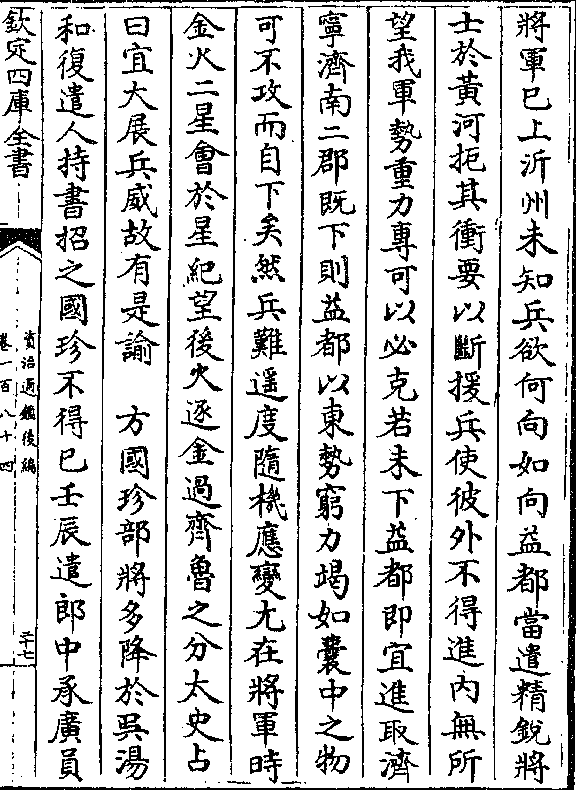 將軍已上沂州未知兵欲何向如向益都當遣精銳將
士於黃河扼其衝要以斷援兵使彼外不得進內無所
望我軍勢重力專可以必克若未下益都即宜進取濟
寧濟南二郡既下則益都以東勢窮力竭如囊中之物
可不攻而自下矣然兵難遥度隨機應變尤在將軍時
金火二星會於星紀望後火逐金過齊魯之分太史占
曰宜大展兵威故有是諭　方國珍部將多降於吳湯
和復遣人持書招之國珍不得已壬辰遣郎中承廣員
欽定四庫全書
資治通鑑後編
卷一百八十四
二十七